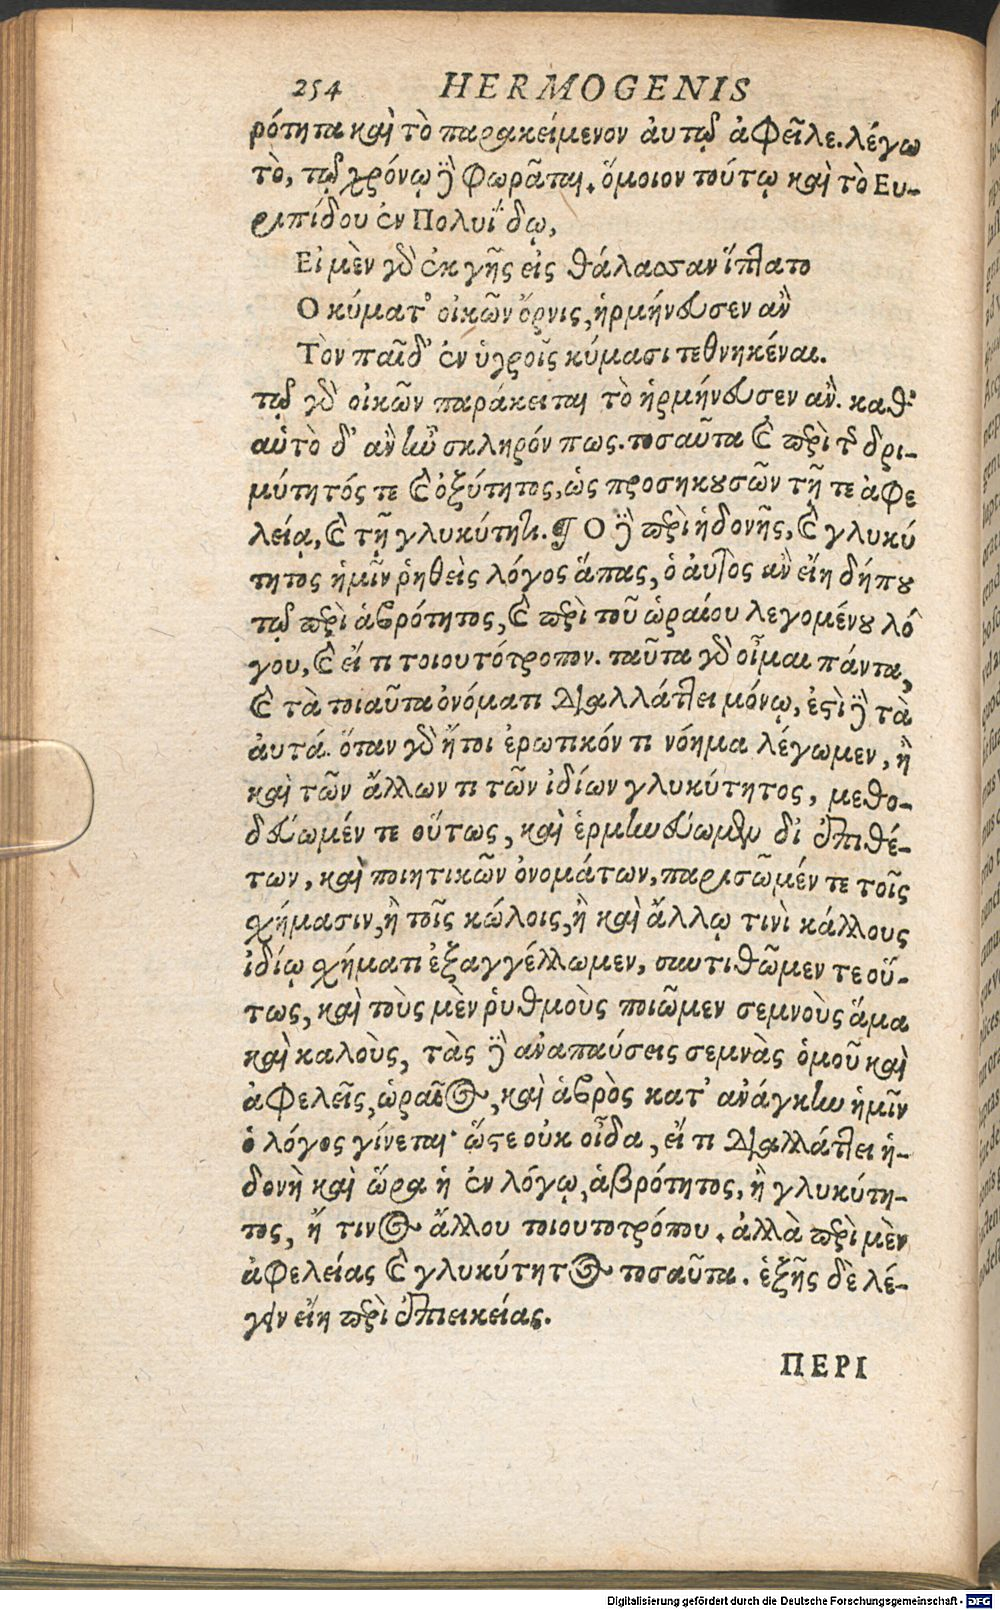 254 HERMOGENIS
ρότητα καὶ τὸ παρακείμενον αὐτῷ ἀφεῖλε. λέγω
τὸ, τῷ χρόνῳ δὲ φωρᾶται. ὅμοιον τούτῳ καὶ τὸ Ευ-
ριπίδου ἐν Πολυΐδῳ,
Εἰ μὲν γὰρ ἐκ γῆς εἰς θάλασσαν ἵπτατο
Ο κύματ' οἰκῶν ὄρνις, ἡρμήνευσεν ἂν
Τὸν παῖδ' ἐν ὑγροῖς κύμασι τεθνηκέναι.
τῷ γὰρ οἰκῶν παράκειται τὸ ἡρμήνευσεν ἄν. καθ'
αὑτὸ δ' ἂν ἦν σκληρόν πως. τοσαῦτα καὶ περὶ τῆς δρι-
μύτητός τε καὶ ὀξύτητος, ὡς προσηκουσῶν τῇ τε ἀφε
λείᾳ, καὶ τῇ γλυκύτητι. ¶ Ο δὲ περὶ ἡδονῆς, καὶ γλυκύ
τητος ἡμῖν ῥηθεὶς λόγος ἅπας, ὁ αὐτὸς ἂν εἴη δήπου
τῷ περὶ ἁβρότητος, καὶ περὶ τοῦ ὡραίου λεγομένου λό
γου, καὶ εἴ τι τοιουτότροπον. ταῦτα γὰρ οἶμαι πάντα,
καὶ τὰ τοιαῦτα ὀνόματι διαλλάττει μόνῳ, ἐστὶ δὲ τὰ
αὐτά. ὅταν γὰρ ἤτοι ἐρωτικόν τι νόημα λέγωμεν, ἢ
καὶ τῶν ἄλλων τι τῶν ἰδίων γλυκύτητος, μεθο-
δεύωμέν τε οὕτως, καὶ ἑρμηνεύωμεν δι' ἐπιθέ-
των, καὶ ποιητικῶν ὀνομάτων, παρισῶμέν τε τοῖς
σχήμασιν, ἢ τοῖς κώλοις, ἢ καὶ ἄλλῳ τινὶ κάλλους
ἰδίῳ σχήματι ἐξαγγέλλωμεν, συντιθῶμεν τε οὕ-
τως, καὶ τοὺς μὲν ῥυθμοὺς ποιῶμεν σεμνοὺς ἅμα
καὶ καλοὺς, τὰς δὲ ἀναπαύσεις σεμνὰς ὁμοῦ καὶ
ἀφελεῖς, ὡραῖος, καὶ ἁβρὸς κατ' ἀνάγκην ἡμῖν
ὁ λόγος γίνεται· ὥστε οὐκ οἶδα, εἴ τι διαλλάττει ἡ-
δονὴ καὶ ὥρα ἡ ἐν λόγῳ, ἁβρότητος, ἢ γλυκύτη-
τος, ἤ τινος ἄλλου τοιουτοτρόπου. ἀλλὰ περὶ μὲν
ἀφελείας καὶ γλυκύτητος τοσαῦτα. ἑξῆς δὲ λέ-
γειν εἴη περὶ ἐπιεικείας.
ΠΕΡΙ
Digitalisierung gefördert durch die Deutsche Forschungsgemeinschaft - DFG